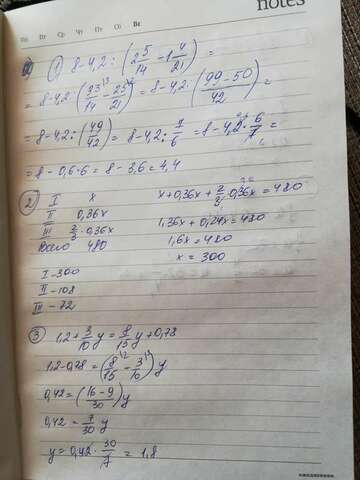 notes
Вт Ср Чт Пт Сб Вс
1) 8-4,2 : (2 5/14 - 1 4/21) =
= 8-4,2 : (33/14 - 25/21) = 8-4,2 : (99-50/42) =
= 8-4,2 : (49/42) = 8-4,2 : 7/6 = 8-4,2 · 6/7 =
= 8 - 0,6·6 = 8 - 3,6 = 4,4
2) I x x + 0,36x + 2/3 · 0,36x = 480
II 0,36x
III 2/3 · 0,36x 1,36x + 0,24x = 480
Всего 480 1,6x = 480
x = 300
I - 300
II - 108
III - 72
3) 1,2 + 3/10 y = 8/15 y + 0,78
1,2 - 0,78 = (8/15 - 3/10) y
0,42 = (16-9/30) y
0,42 = 7/30 y
y = 0,42 · 30/7 = 1,8